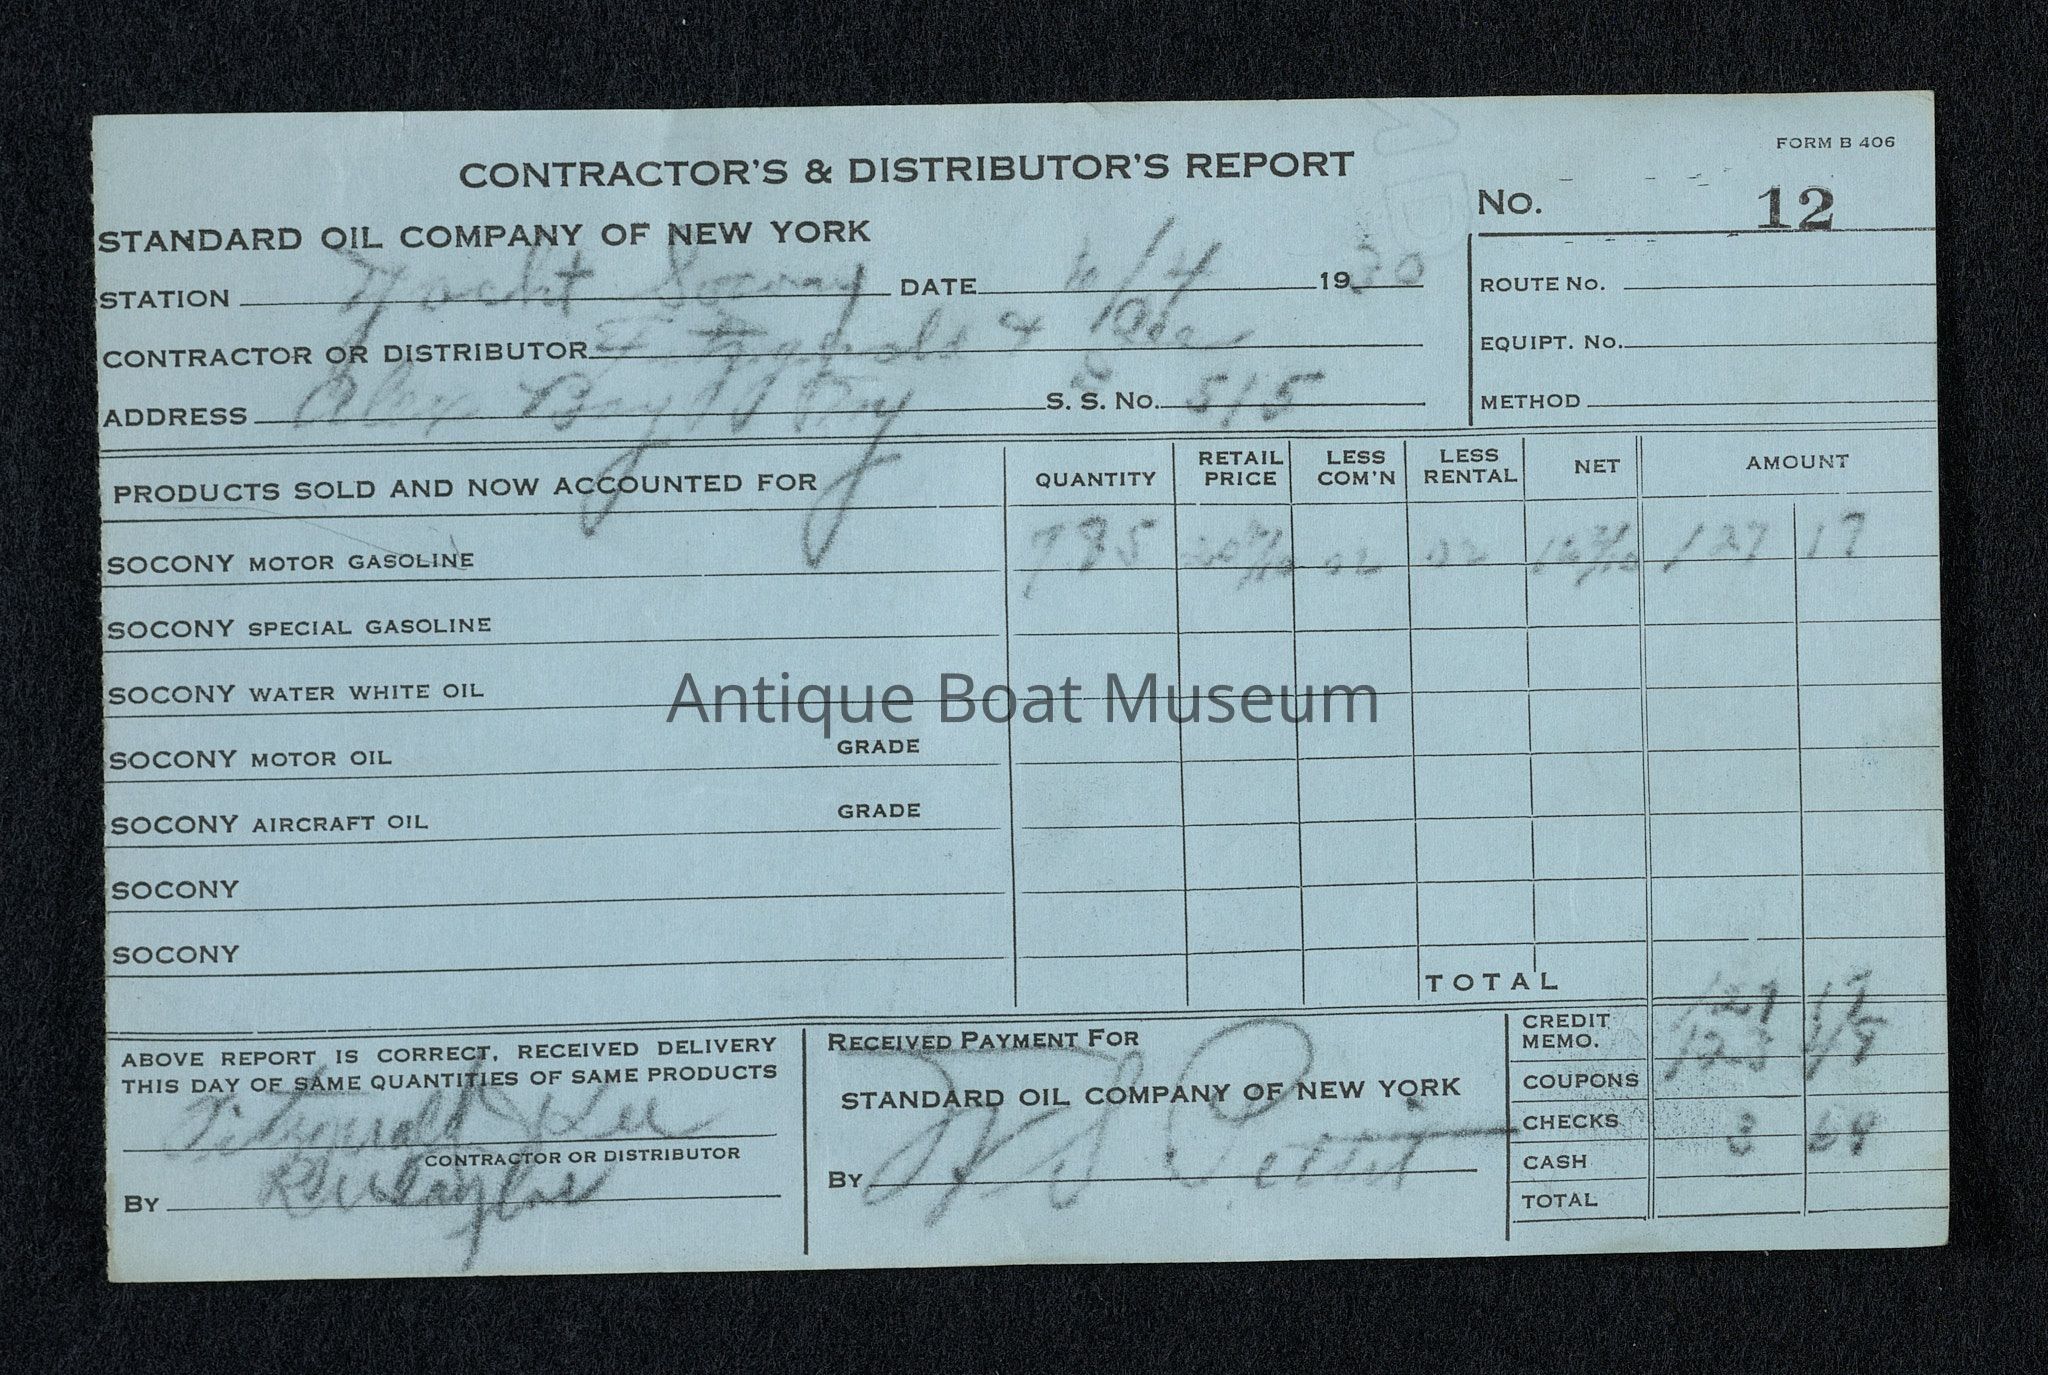 FORM B 406
CONTRACTOR'S & DISTRIBUTOR'S REPORT
No. 12
STANDARD OIL COMPANY OF NEW YORK
STATION Yacht Socony DATE /4 1930
ROUTE No.
CONTRACTOR OR DISTRIBUTOR Fitzgerald & Lee
EQUIPT. No.
ADDRESS Alex Bay N Y S. S. No. 515
METHOD
PRODUCTS SOLD AND NOW ACCOUNTED FOR QUANTITY RETAIL PRICE LESS COM'N LESS RENTAL NET AMOUNT
SOCONY MOTOR GASOLINE 785 02 02 127 17
SOCONY SPECIAL GASOLINE
SOCONY WATER WHITE OIL
Antique Boat Museum
SOCONY MOTOR OIL GRADE
SOCONY AIRCRAFT OIL GRADE
SOCONY
SOCONY
TOTAL 127 17
ABOVE REPORT IS CORRECT, RECEIVED DELIVERY
THIS DAY OF SAME QUANTITIES OF SAME PRODUCTS
Fitzgerald & Lee
CONTRACTOR OR DISTRIBUTOR
BY
RECEIVED PAYMENT FOR
STANDARD OIL COMPANY OF NEW YORK
BY
CREDIT MEMO. 123
COUPONS
CHECKS 3
CASH
TOTAL